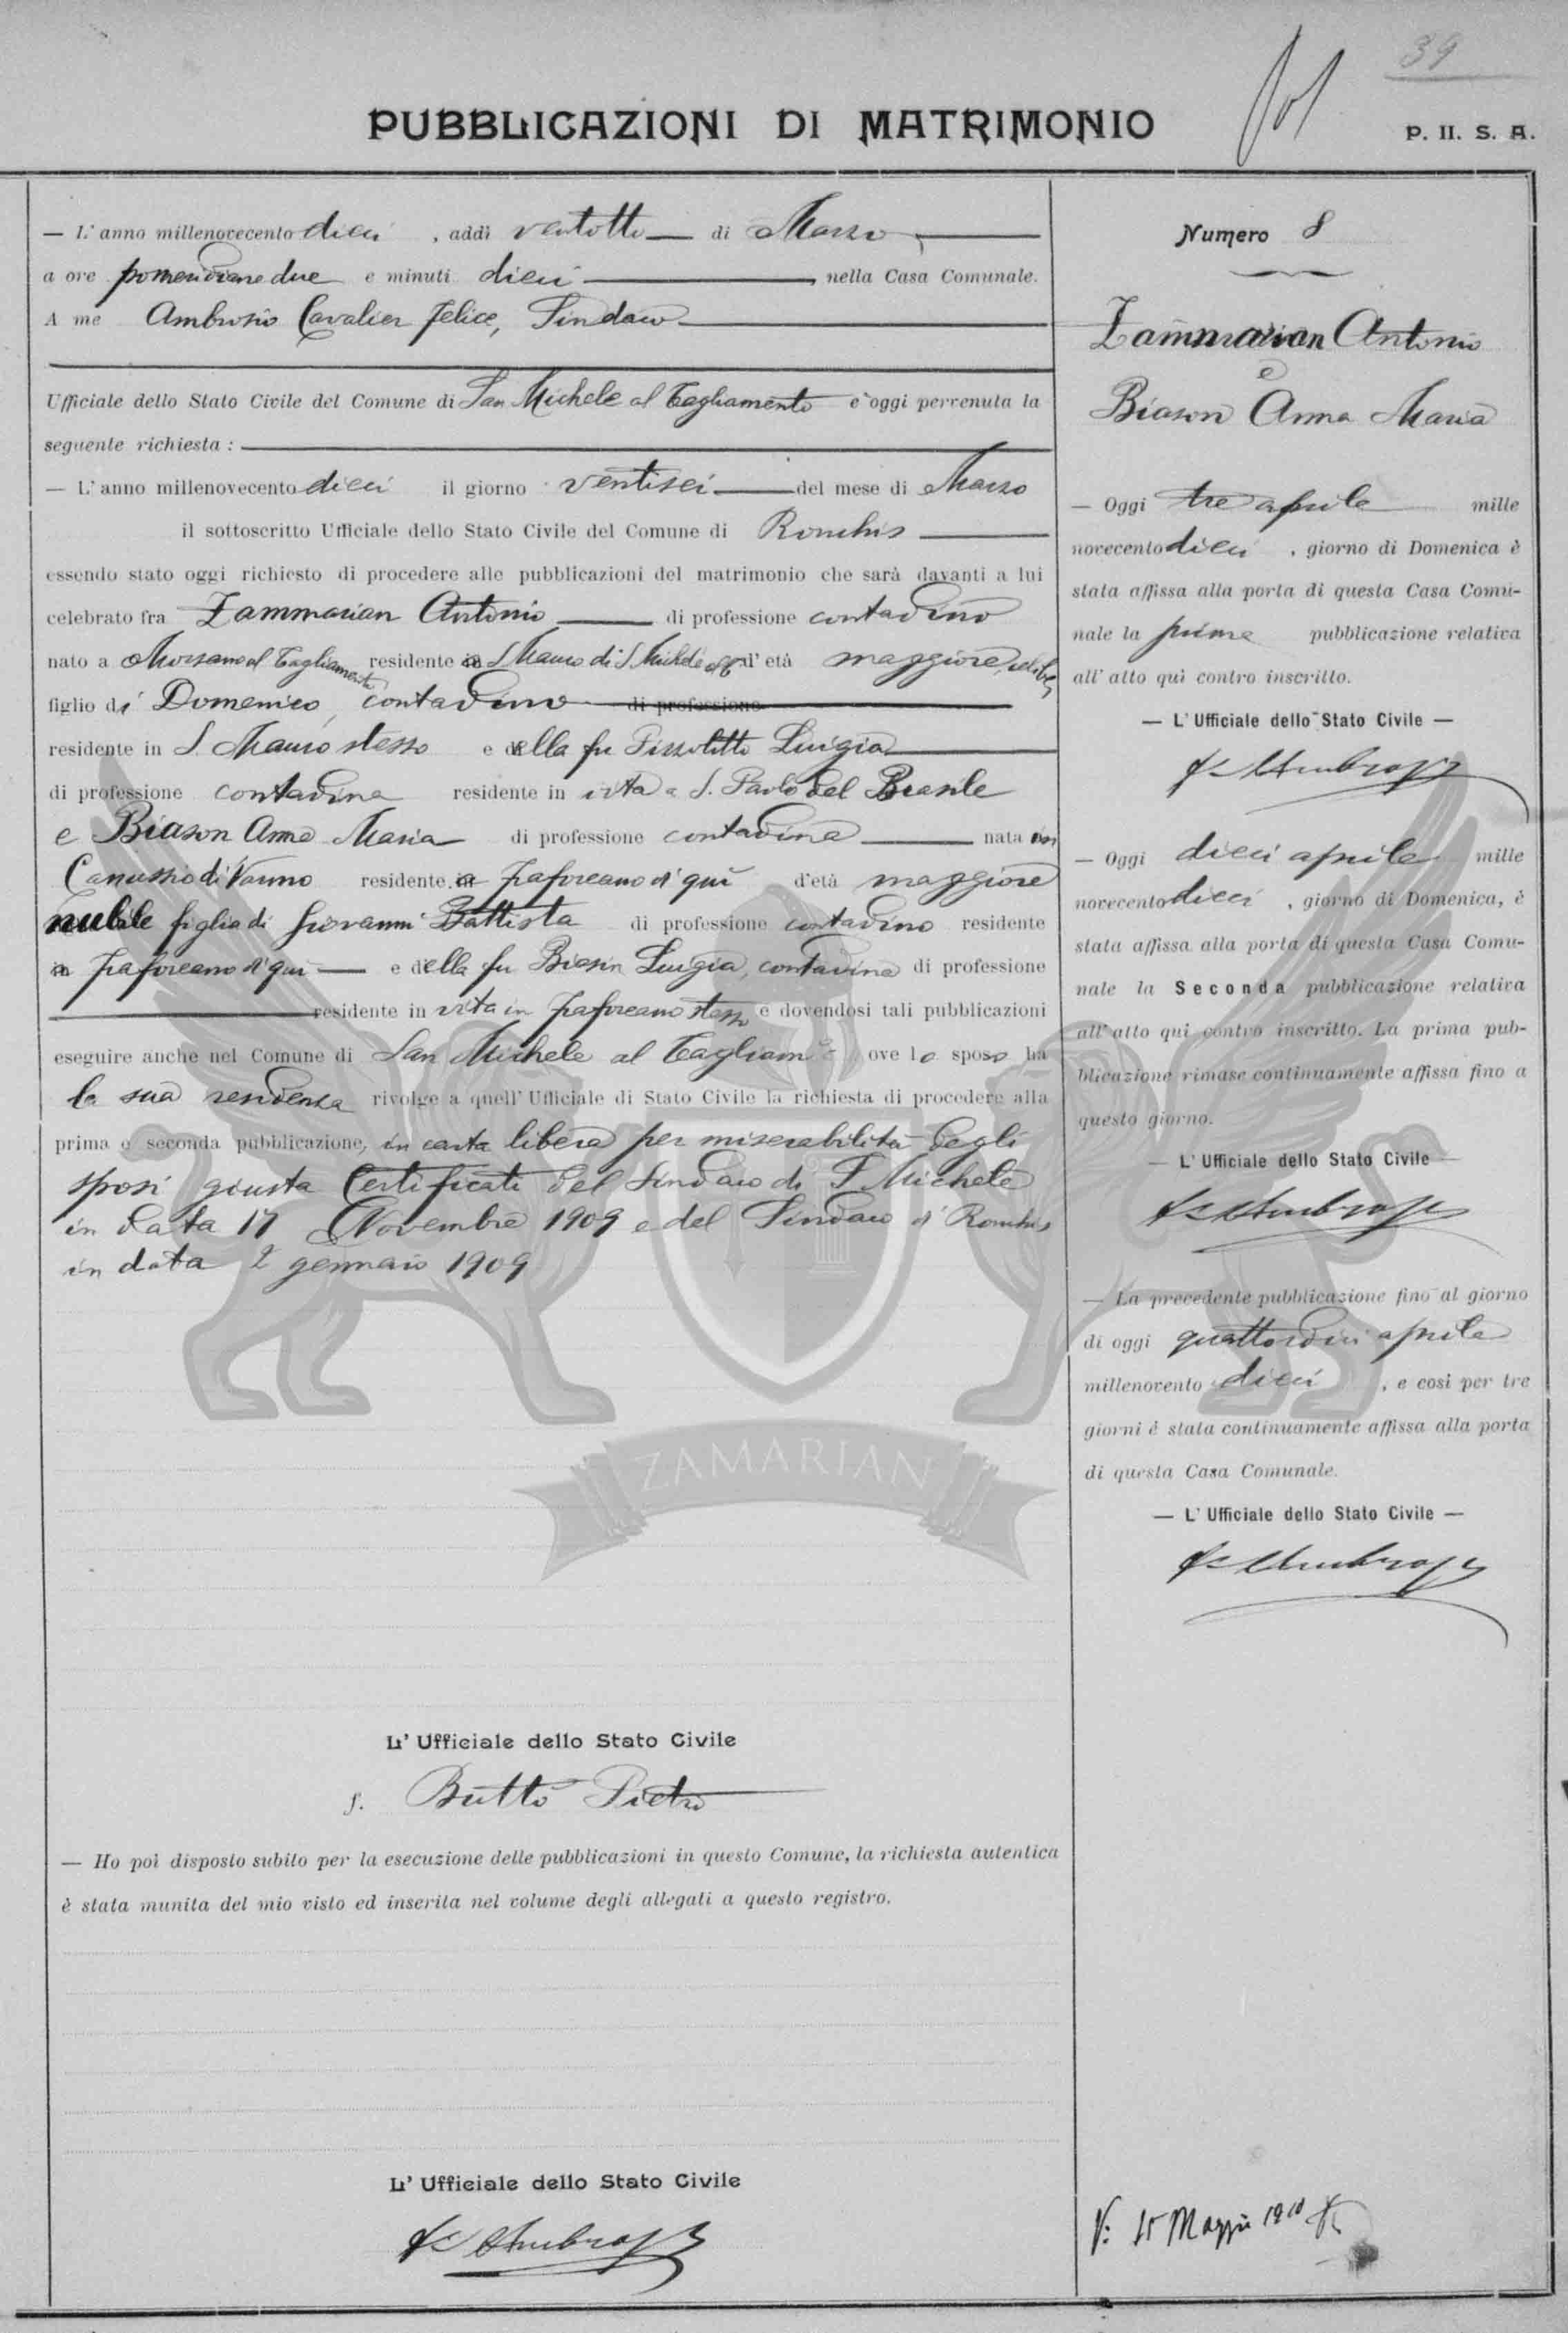 39
PUBBLICAZIONI DI MATRIMONIO
P. II. S. A.
— L'anno millenovecento dieci, addì ventotto di Marzo,
a ore pomeridiane due e minuti dieci, nella Casa Comunale.
A me Ambrosio Cavalier Felice, Sindaco
Ufficiale dello Stato Civile del Comune di San Michele al Tagliamento è oggi pervenuta la
seguente richiesta :
— L'anno millenovecento dieci il giorno ventisei del mese di Marzo
il sottoscritto Ufficiale dello Stato Civile del Comune di Ronchis
essendo stato oggi richiesto di procedere alle pubblicazioni del matrimonio che sarà davanti a lui
celebrato fra Zammarian Antonio di professione contadino
nato a Morsano al Tagliamento residente a S Mauro di S Michele al d'età maggiore, celibe,
figlio di Domenico, contadino di professione
residente in S. Mauro stesso e della fu Pizzolitto Luigia
di professione contadina residente in vita a S. Paolo del Brasile
e Biason Anna Maria di professione contadina nata in
Canussio di Varmo residente a Fraforeano d' qui d'età maggiore
nubile figlia di Giovanni Battista di professione contadino residente
a Fraforeano d' qui e della fu Biasin Luigia, contadina di professione
residente in vita in Fraforeano stesso e dovendosi tali pubblicazioni
eseguire anche nel Comune di San Michele al Tagliam° ove lo sposo ha
la sua residenza rivolge a quell' Ufficiale di Stato Civile la richiesta di procedere alla
prima e seconda pubblicazione, in carta libera per miserabilità degli
sposi giusta Certificati del Sindaco di S. Michele
in data 17 Novembre 1909 e del Sindaco d' Ronchis
in data 2 gennaio 1909
ZAMARIAN
L' Ufficiale dello Stato Civile
f. Buttò Pietro
— Ho poi disposto subito per la esecuzione delle pubblicazioni in questo Comune, la richiesta autentica
è stata munita del mio visto ed inserita nel volume degli allegati a questo registro.
L' Ufficiale dello Stato Civile
Numero 8
Zammarian Antonio
e
Biason Anna Maria
— Oggi tre aprile mille
novecento dieci, giorno di Domenica è
stata affissa alla porta di questa Casa Comu-
nale la prima pubblicazione relativa
all' atto quì contro inscritto.
— L' Ufficiale dello Stato Civile —
— Oggi dieci aprile mille
novecento dieci, giorno di Domenica, è
stata affissa alla porta di questa Casa Comu-
nale la Seconda pubblicazione relativa
all' atto qui contro inscritto. La prima pub-
blicazione rimase continuamente affissa fino a
questo giorno.
— L' Ufficiale dello Stato Civile —
— La precedente pubblicazione fino al giorno
di oggi quattordici aprile
millenovento dieci, e così per tre
giorni è stata continuamente affissa alla porta
di questa Casa Comunale.
— L' Ufficiale dello Stato Civile —
V: 15 Maggio 1910